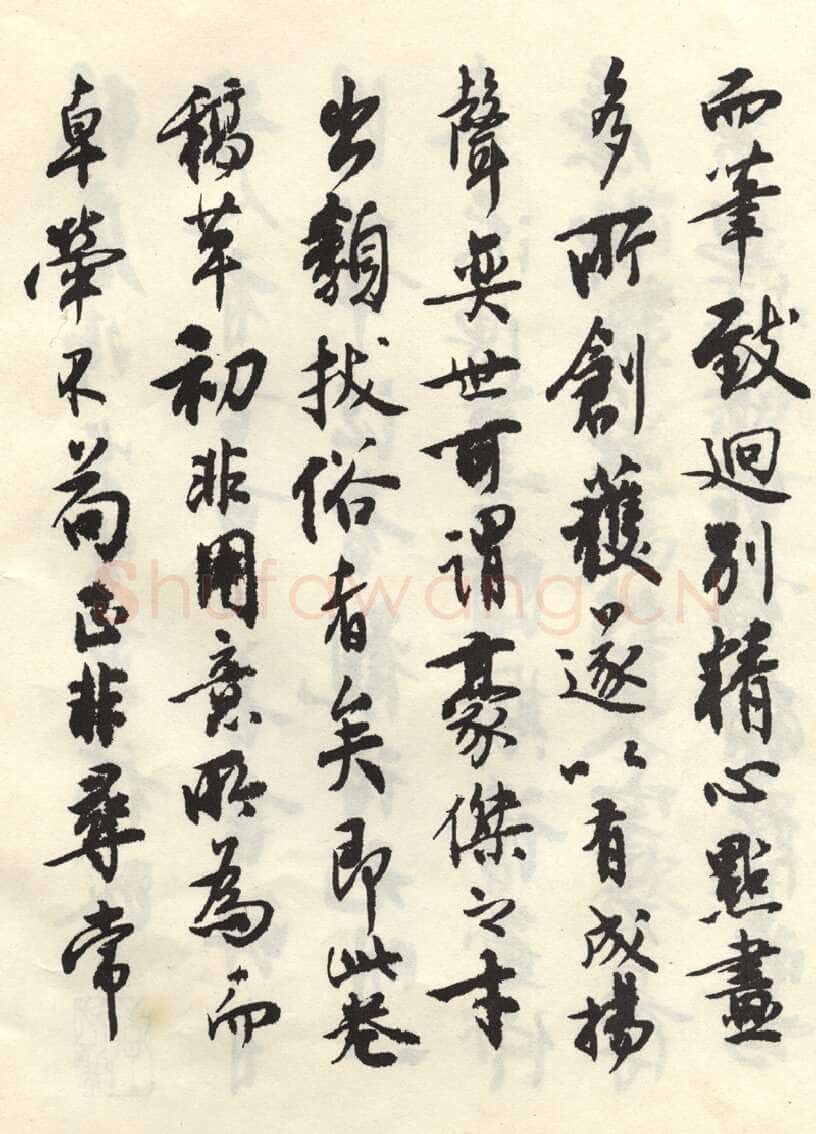 而筆致迥别精心點畫
多所創獲遂以有成揚
聲奕世可謂豪傑之才
出類拔俗者矣即此卷
稿草初非用意所為而
卓犖不苟正非尋常
Shufawang.CN